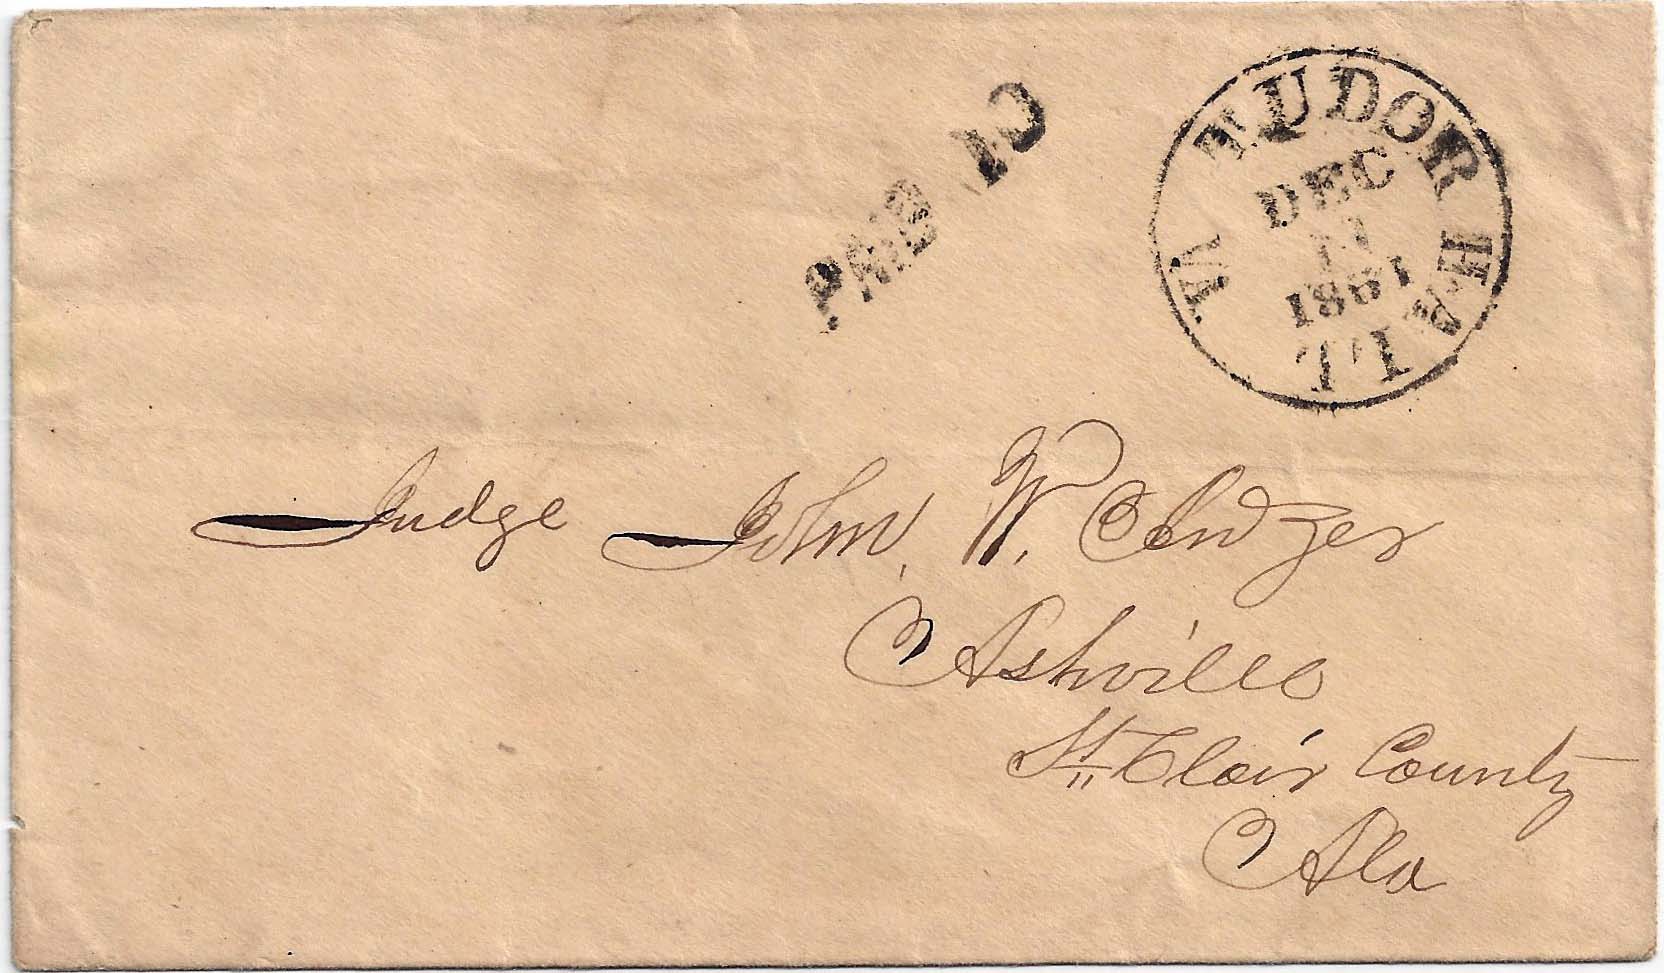 PAID 10
TUDOR HALL VA
DEC
11
1861
Judge John, W. Inzer
Ashville
St. Clair County
Ala